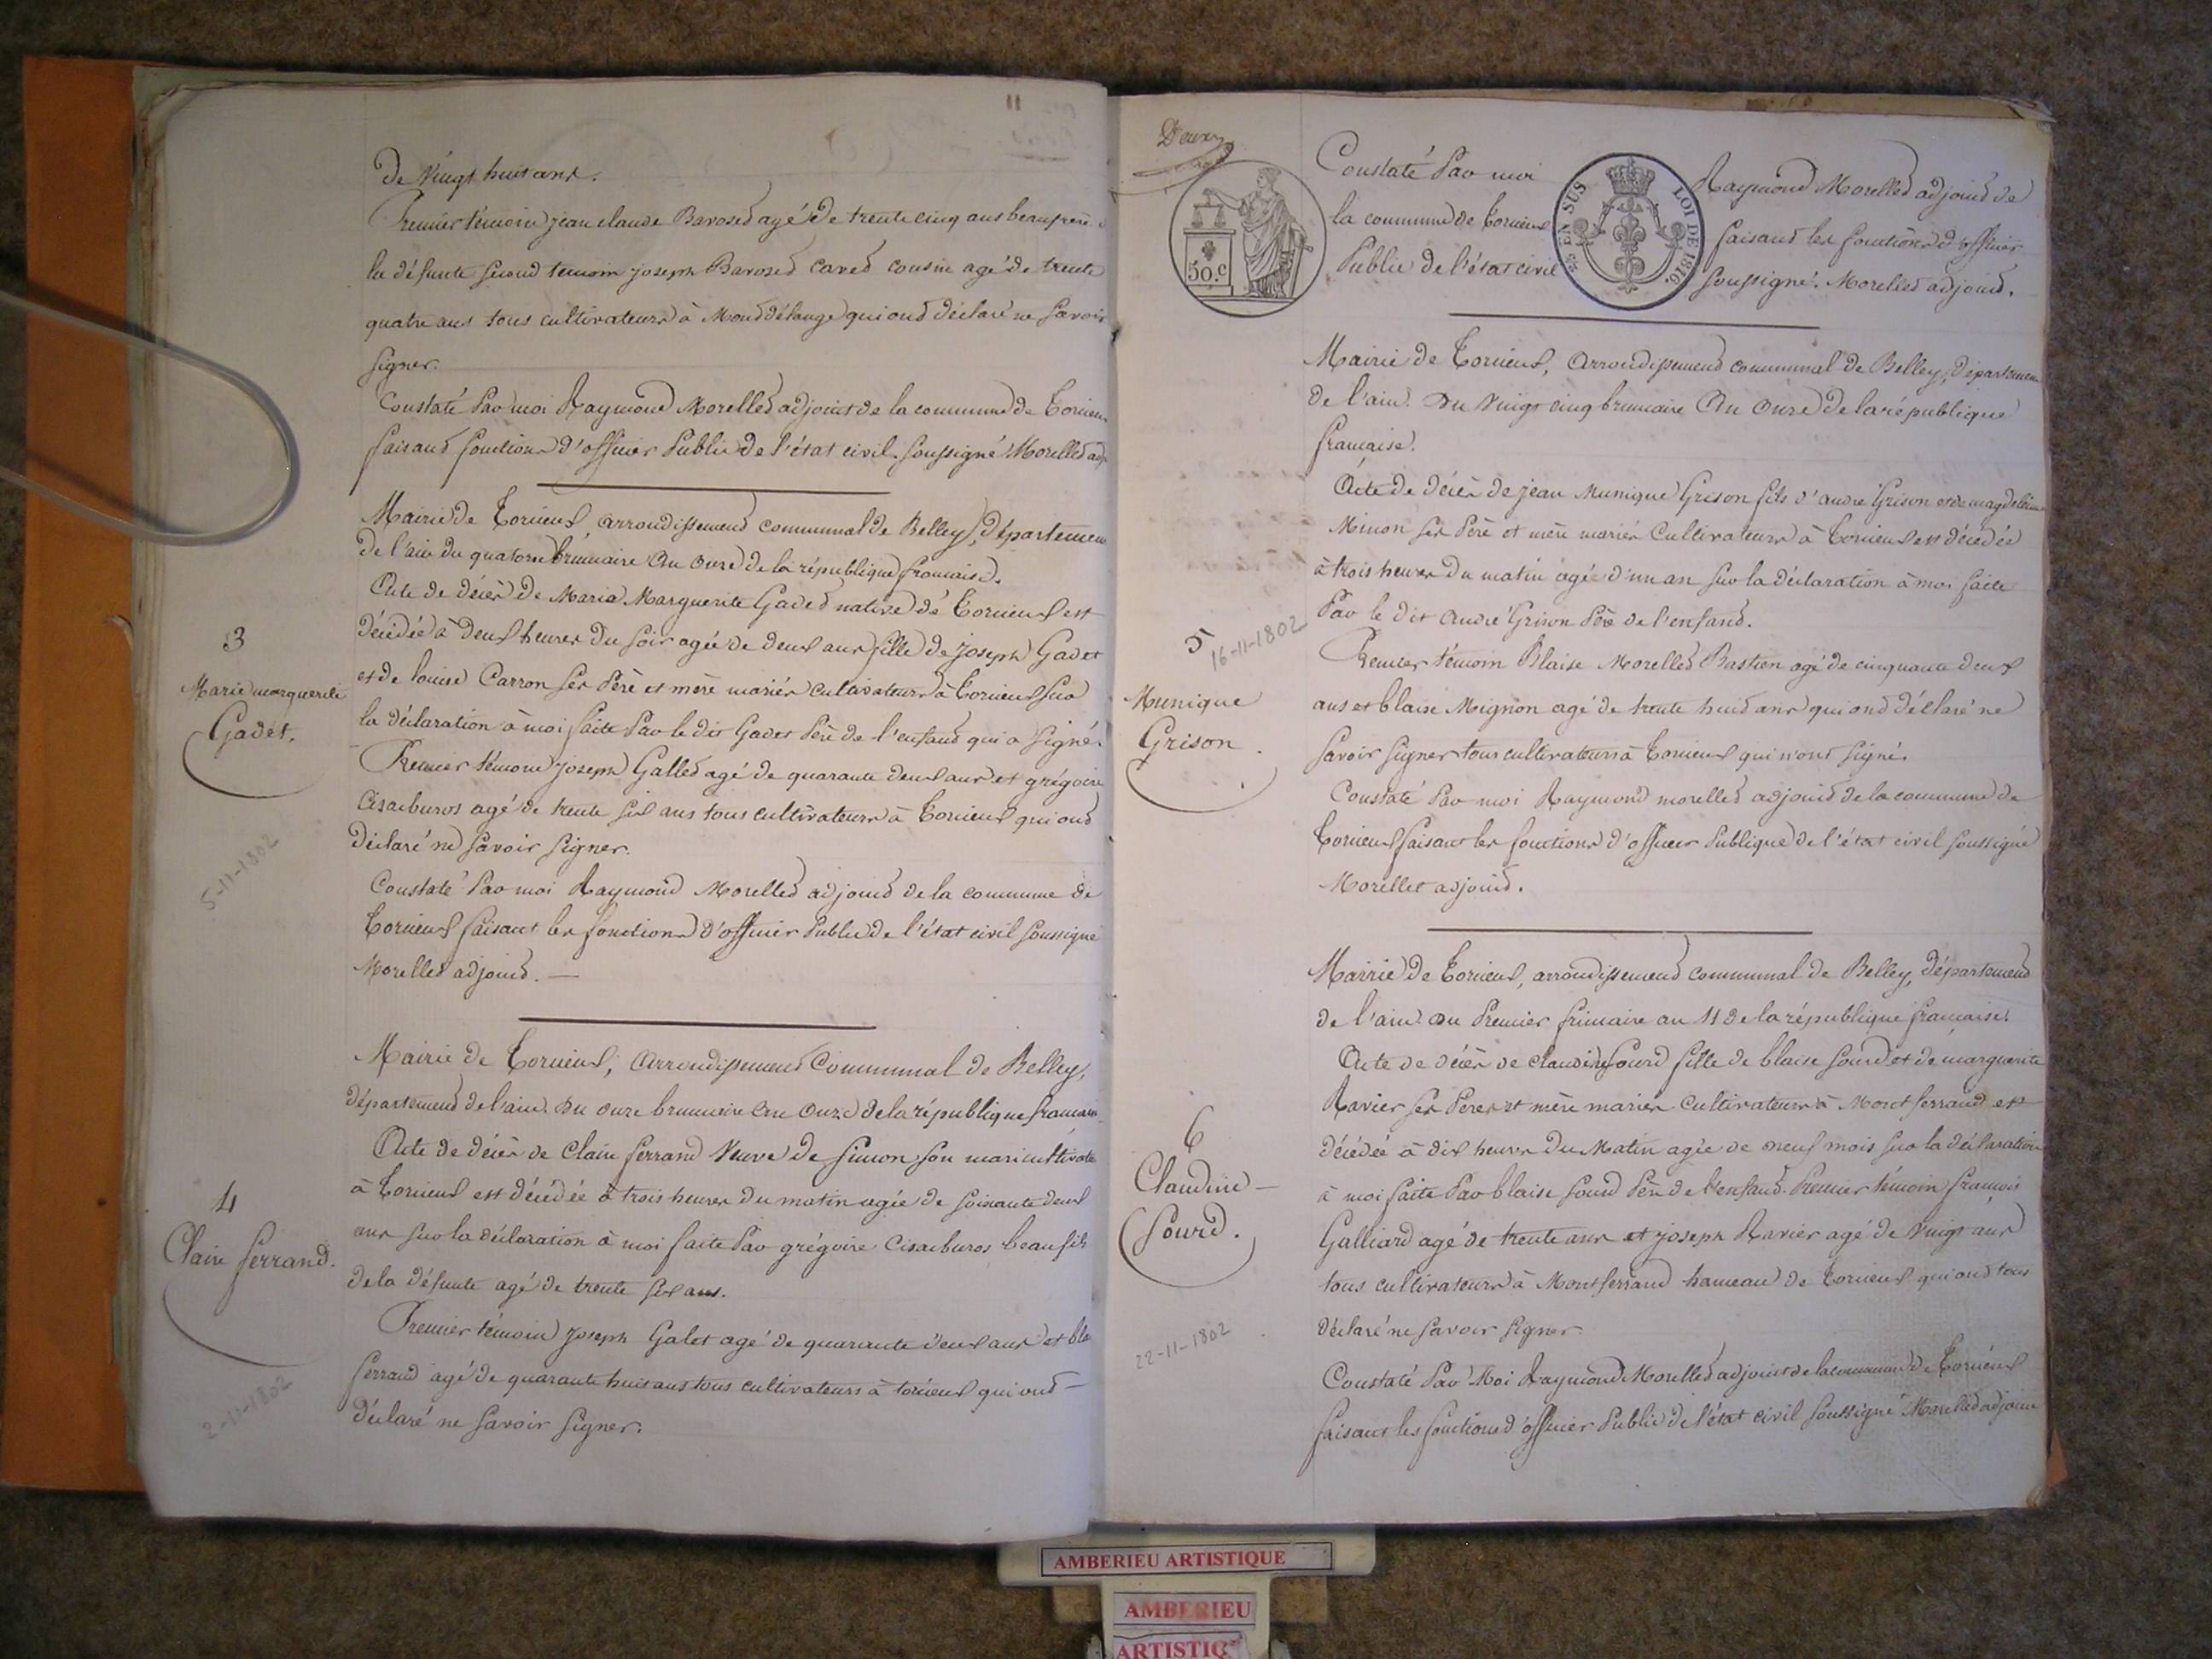 11
de Vingt huit ans.
Premier témoin jean claude Baroset agé de trente cinq ans beaufrere
la défunte second temoin joseph Baroset cousin agé de trente
quatre ans tous cultivateurs à qui ont déclaré ne savoir
signer.
Constaté Par moi Raymond Morellet adjoint de la commune de Torcieu
faisant fonctions d'officier Public de l'état civil. soussigné Morellet adj
Mairie de Torcieux, arrondissement communal de Belley, Département
de l'ain du quatorze brumaire An onze de la république francaise.
Acte de décès de Marie Marguerite Gadet native de Torcieux est
décédée à deux heures du soir agée de deux ans fille de joseph Gadet
et de louise Carron ses Père et mère mariés cultivateurs à Torcieux sur
la déclaration à moi faite Par le dit Gadet Père de l'enfant qui a signé.
Premier témoin joseph Gallet agé de quarante deux ans et grégoire
Cisarburos agé de trente six ans tous cultivateurs à Torcieux qui ont
déclaré ne savoir signer.
Constaté Par moi Raymond Morellet adjoint de la commune de
Torcieux faisant les fonctions d'officier Public de l'état civil soussigné
Morellet adjoint. —
3
Marie marguerite
Gadet.
5-11-1802
Mairie de Torcieux, arrondissement Communal de Belley,
département de l'ain. Du onze brumaire an onze de la république francaise
Acte de décès de Claire ferrand Veuve de Simon son mari cultivate
à Torcieux est décédée à trois heures du matin agée de soixante deux
ans sur la déclaration à moi faite Par grégoire Cisarburos beaufils
de la défunte agé de trente six ans.
Premier témoin joseph Galet agé de quarante deux ans et bla
ferrand agé de quarante huit ans tous cultivateurs à torcieux qui ont —
déclaré ne savoir signer.
4
Claire ferrand.
2-11-1802
Deux
50.c
EN SUS
LOI DE 1816.
Constaté Par moi Raymond Morellet adjoint de
la commune de Torcieux faisant les fonctions d'officier
Public de l'état civil soussigné. Morellet adjoint.
Mairie de Torcieux, arrondissement communal de Belley, département
de l'ain. Du Vingt cinq brumaire An onze de la république
francaise.
Acte de décès de jean Munique Grison fils d'andré Grison et de magdelaine
Minon ses Père et mère mariés Cultivateurs à Torcieux est décédée
à trois heures du matin agée d'un an sur la déclaration à moi faite
Par le dit André Grison Père de l'enfant.
Premier témoin Blaise Morellet Bastien agé de cinquante deux
ans et blaise Mugnon agé de trente huit ans qui ont déclaré ne
savoir signer tous cultivateurs à Torcieux qui n'ont signé.
Constaté Par moi Raymond morellet adjoint de la commune de
Torcieux faisant les fonctions d'officier Publique de l'état civil soussigné
Morellet adjoint.
5
16-11-1802
Munique
Grison.
Mairie de Torcieux, arrondissement communal de Belley, département
de l'ain. Du Premier frimaire an 11 de la république francaise.
Acte de décès de claudine Sourd fille de blaise Sourd et de marguerite
Ravier ses Peres et mère mariés Cultivateurs à Montferrand est
décédée à dix heures du Matin agée de neuf mois sur la déclaration
à moi faite Par blaise sourd Père de l'enfant. Premier témoin francois
Galliard agé de trente ans et joseph Ravier agé de Vingt ans
tous cultivateurs à Montferrand hameau de Torcieux qui ont tous
déclaré ne savoir signer.
Constaté Par Moi Raymond Morellet adjoint de la commune de Torcieux
faisant les fonctions d'officier Public de l'état civil soussigné Morellet adjoint
6
Claudine —
Sourd.
22-11-1802
AMBERIEU ARTISTIQUE
AMBERIEU
ARTISTIQ